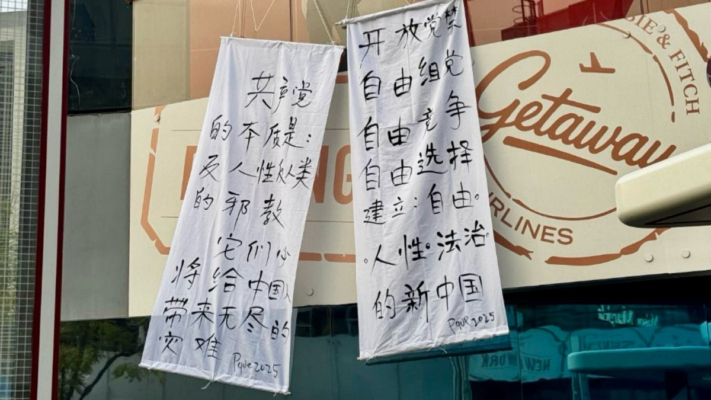 共产党
的本质是:
反人性从类
的邪教
它们
将给中国人
带来无尽的
灾难
Pque 2025
开放党禁
自由组党
自由竞争
自由选择
建立:自由。
人性。法治
的新中国
Pque 2025
Getaway
& FITCH
AIRLINES
NEW